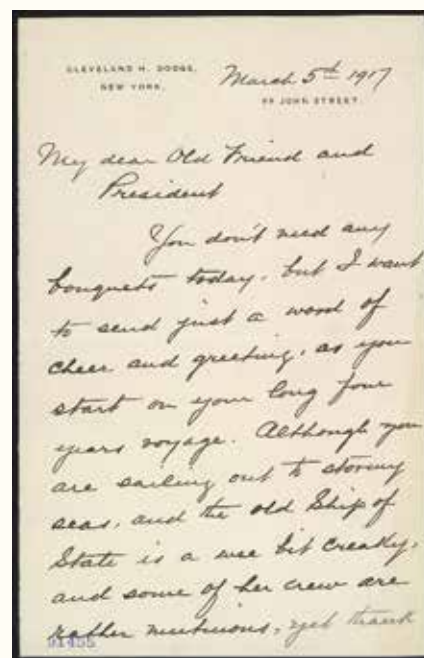 CLEVELAND H. DODGE,
NEW YORK.
March 5th 1917
99 JOHN STREET.
My dear Old Friend and
President
You don't need any
bouquets today, but I want
to send just a word of
cheer and greeting, as you
start on your long four
years voyage. Although you
are sailing out to stormy
seas, and the old Ship of
State is a wee bit creaky,
and some of her crew are
rather mutinous, yet thank
91455